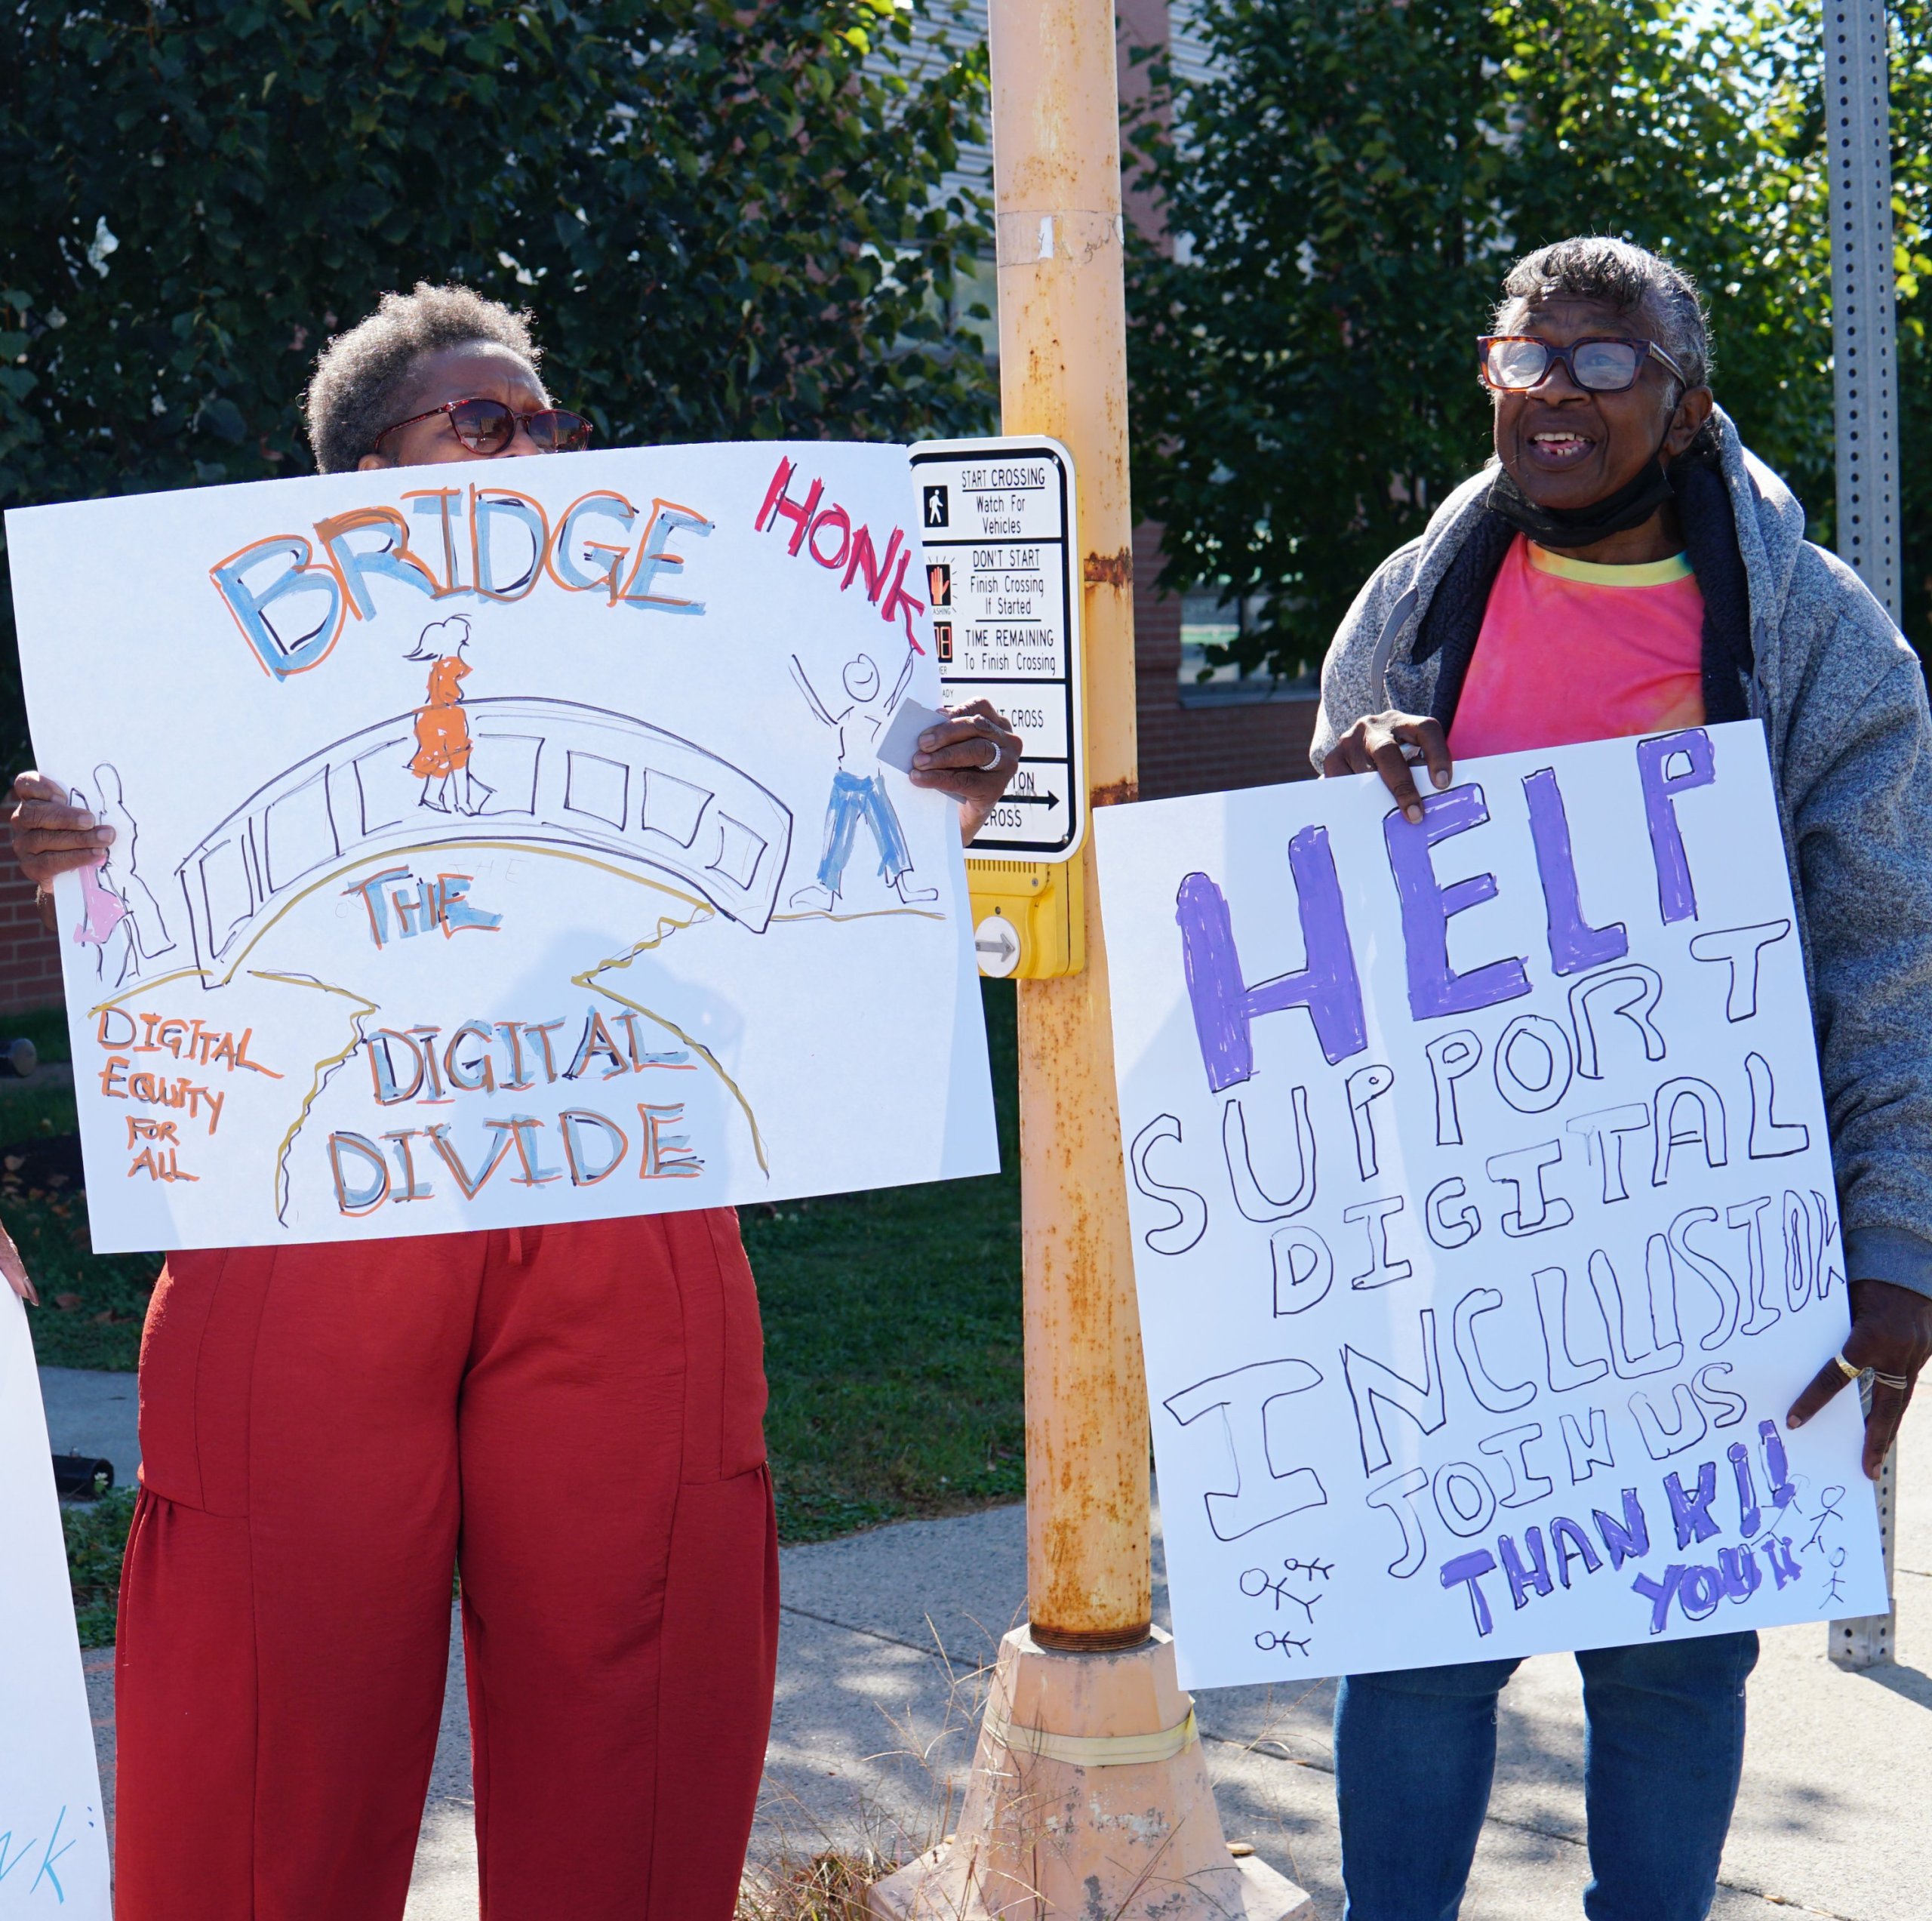 BRIDGE
HONK
THE
DIGITAL
DIVIDE
DIGITAL
EQUITY
FOR
ALL
START CROSSING
Watch For
Vehicles
DON'T START
Finish Crossing
If Started
TIME REMAINING
To Finish Crossing
CROSS
CROSS
HELP
SUPPORT
DIGITAL
INCLUSION
JOIN US
THANK!!
YOU!!